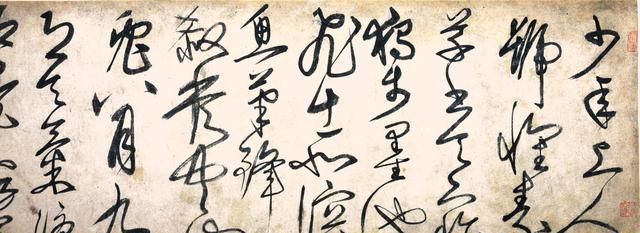 少年上人
號懷素
草書天下稱
獨步墨池
飛出北溟
魚筆鋒
殺盡中山
兔八月九
月天氣涼